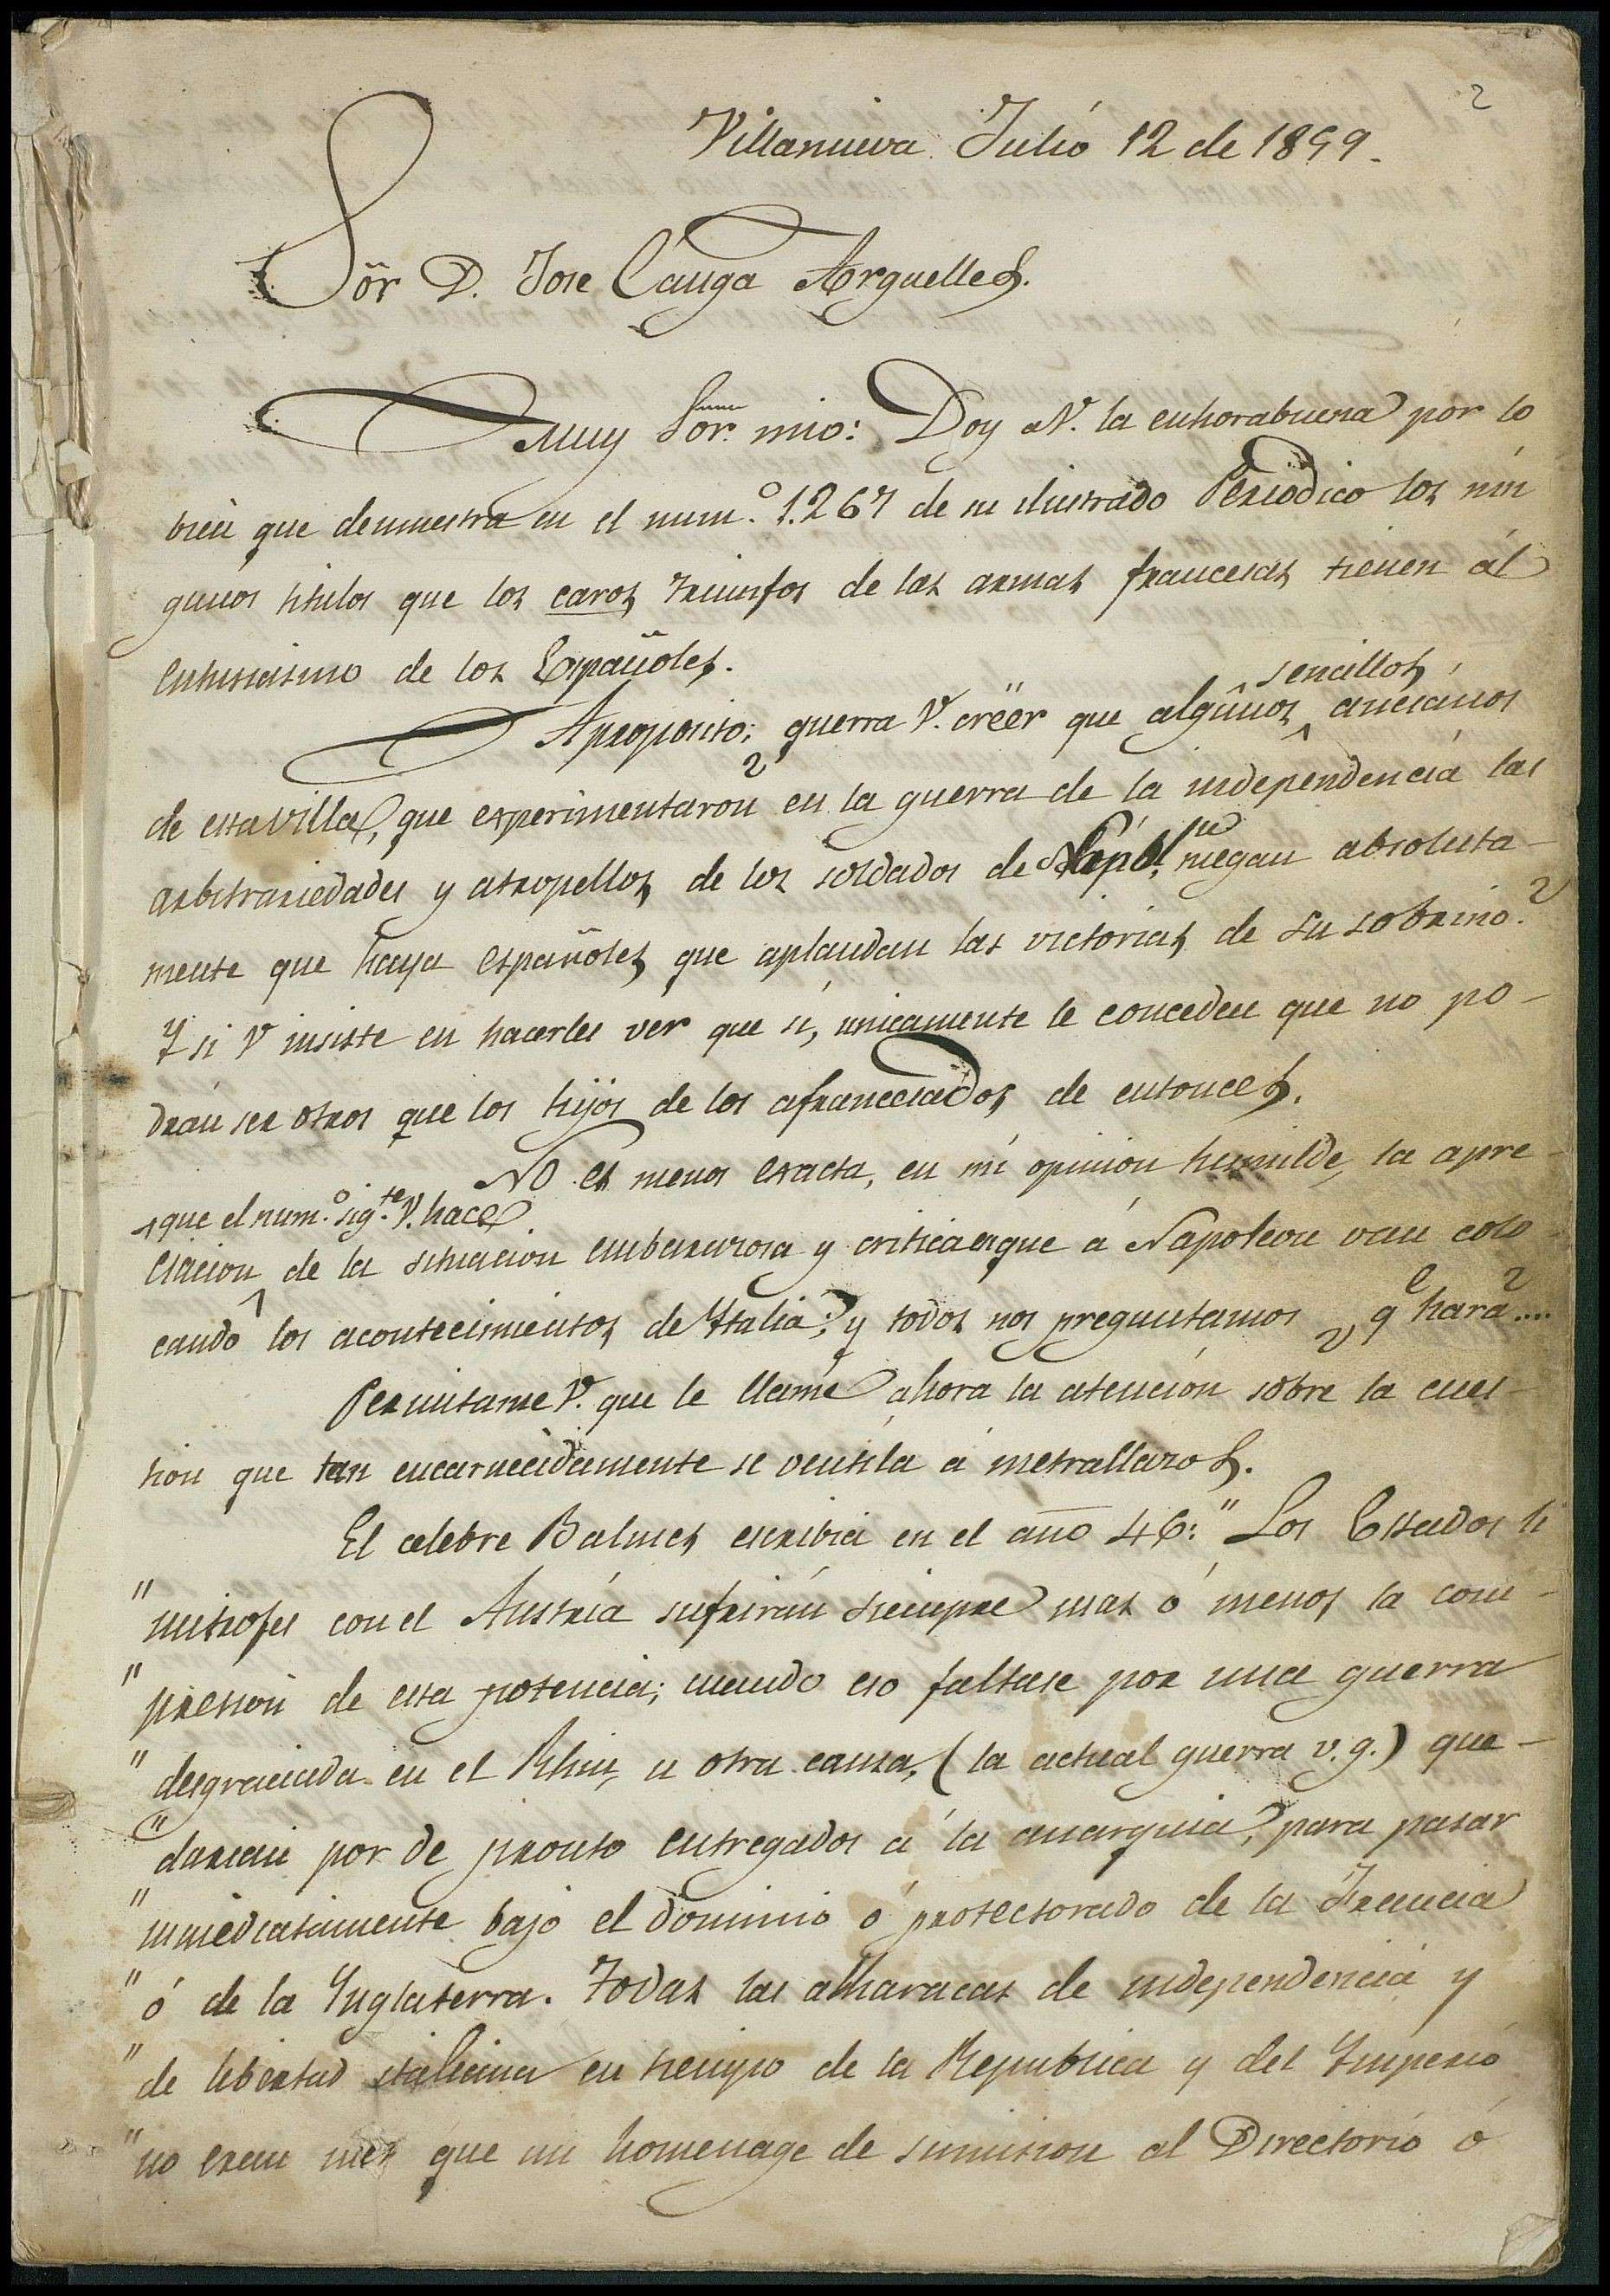 2
Villanueva Julió 12 de 1859.
Sör D. Jose Canga Arguelles.
Muy Sor. mio: Doy á V. la enhorabuena por lo
bien que demuestra en el num.º 1.267 de su ilustrado Periodico los nin
gunos titulos que los caros triunfos de las armas francesas tienen ál
entusiasmo de los Españoles.
sencillos
Aproposito; querra V. creër que algûnos ancianos
de esta villa, que experimentaron en la guerra de la independencia las
arbitrariedades y atropellos de los soldados de Napól, niegan absoluta-
mente que haya españoles que aplaudan las victorias de su sobrino?
Y si V insiste en hacerles ver que si, unicamente le conceden que no po-
drán ser otros que los hijos de los afrancesados de entonces.
No es menos exacta, en mi opinion humilde, la apre-
que el num.º sig.te V. hace
ciacion de la situacion embarazosa y critica en que á Napoleon van colo
cando los acontecimientos de Ytalia, y todos nos preguntamos ¿ qe hará?....
Permitame V. que le llame ahora la atención sobre la cues-
tion que tan encarnecidamente se ventila á metrallazos.
El celebre Balmes escribia en el año 46: " Los Estados li
" mitrofes con el Austria sufrirán siempre mas ó menos la com-
" presion de esta potencia; cuando eso faltase por una guerra
" desgraciada en el Rhin, u otra causa, (la actual guerra v. g.) que-
" darian por de pronto entregados á la anarquia, para pasar
" inmediatamente bajo el dominio ó protectorado de la Francia
" ó de la Ynglaterra. Todas las alharacas de independencia y
" de libertad italiana en tiempo de la Republica y del Ymperio
" no eran mas que un homenage de sumision al Directorio ó